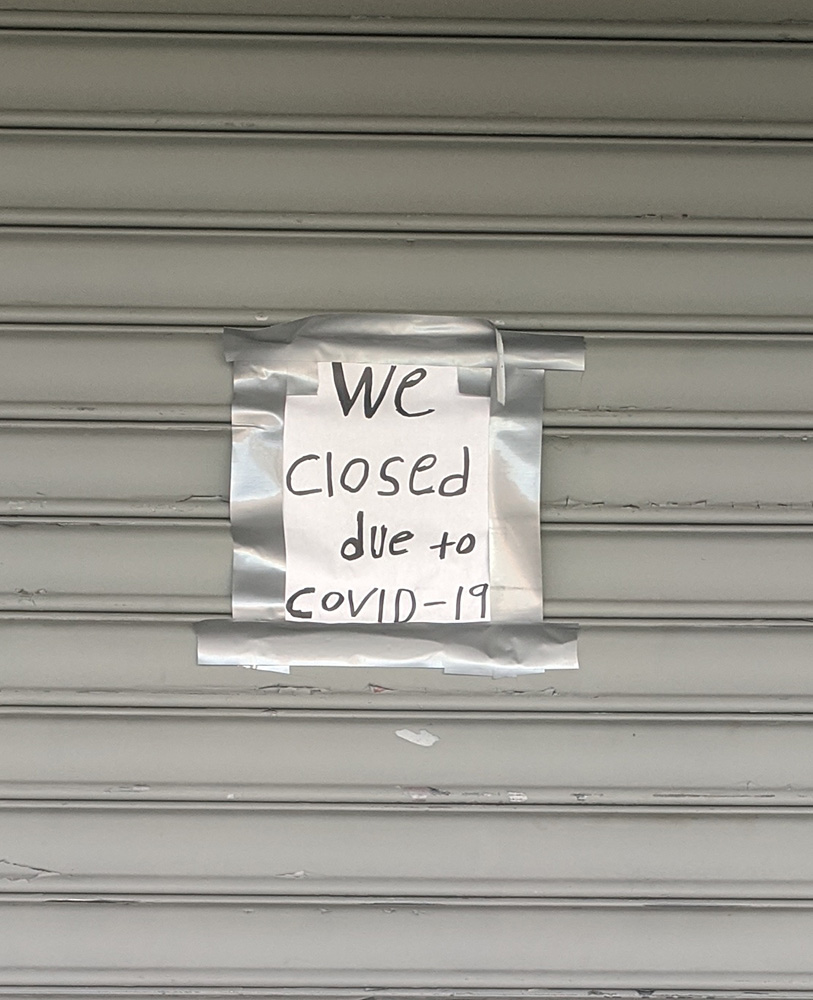 We
closed
due to
COVID-19